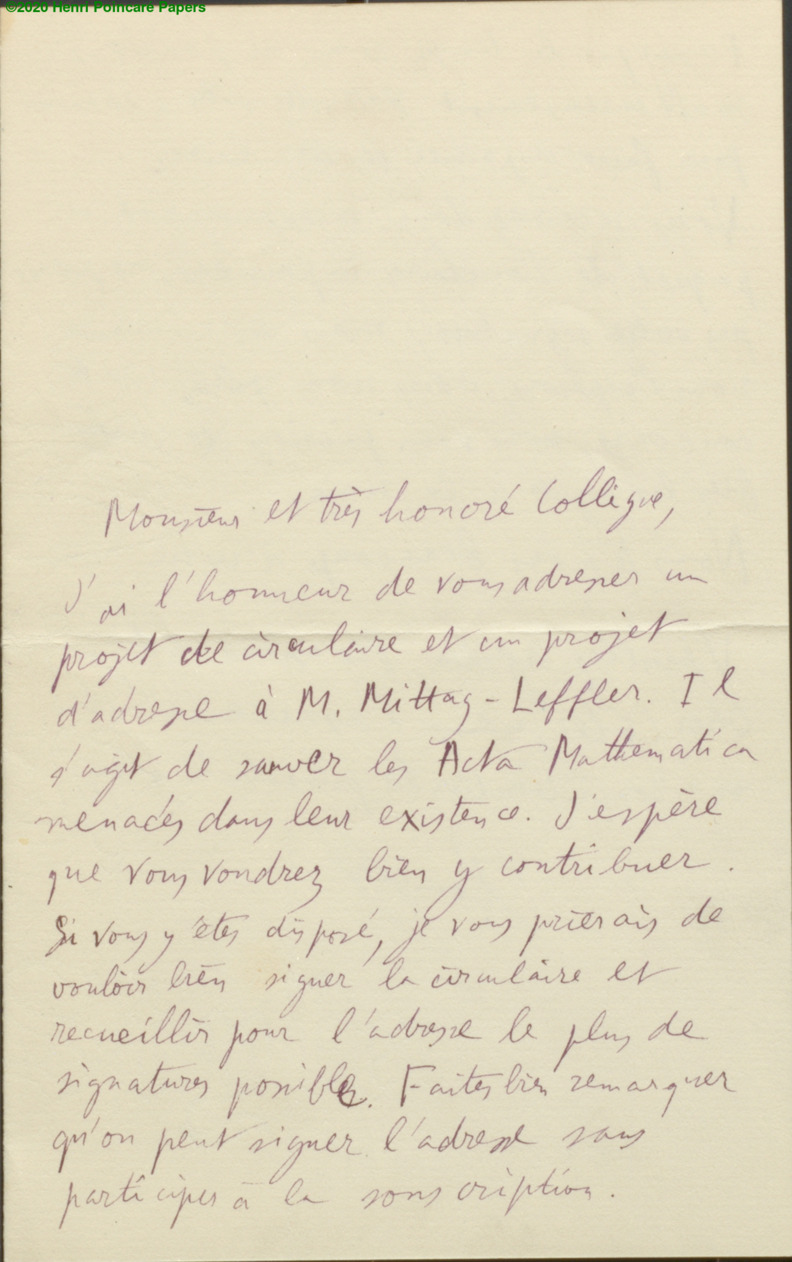 ©2020 Henri Poincaré Papers
Monsieur et très honoré Collègue,
J'ai l'honneur de vous adresser un
projet de circulaire et un projet
d'adresse à M. Mittag-Leffler. Il
s'agit de sauver les Acta Mathematica
menacés dans leur existence. J'espère
que vous voudrez bien y contribuer.
Si vous y êtes disposé, je vous prierais de
vouloir bien signer la circulaire et
recueillir pour l'adresse le plus de
signatures possible. Faites bien remarquer
qu'on peut signer l'adresse sans
participer à la souscription.